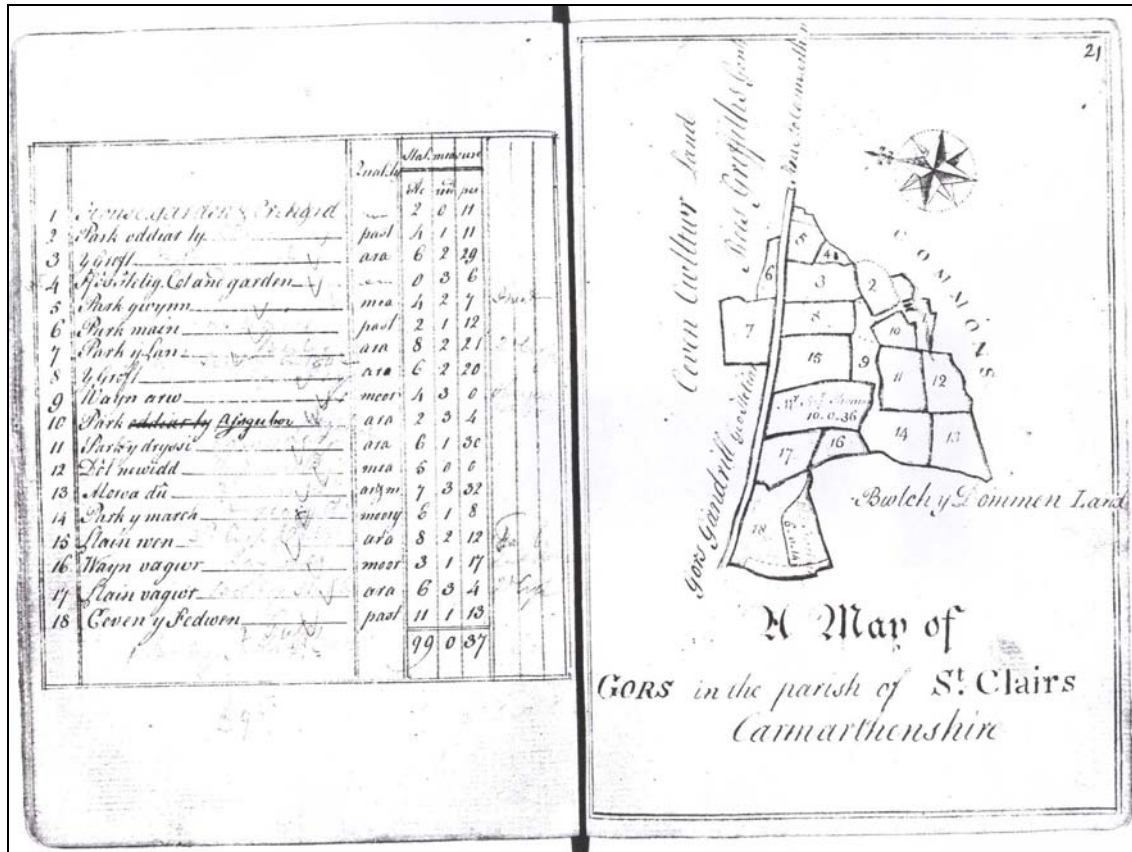 Stat. measure
Quality
Ac per
1 House garden & Orchard 2 0 11
2 Park oddiar ty past 4 1 11
3 Y Groft ara 6 2 29
4 Cot and garden 0 3 6
5 Park gwynn mea 4 2 7
6 Park main past 2 1 12
7 Park y Lan ara 8 2 21
8 Y Groft ara 6 2 20
9 Wayn arw moor 4 3 0
10 Park oddiar ty ara 2 3 4
11 Park y dryssi ara 6 1 30
12 Dol newidd mea
13 du 7 3 32
14 Park y march moory 6 1 8
15 Llain wen ara 8 2 12
16 Wayn vagwr moor 3 1 17
17 Llain vagwr ara 6 3 4
18 Ceven y Fedwen past 11 1 13
99 0 37
21
Ceven Land
Rees Griffiths Gors
Gors Gandrill
COMMONS
5
4
6
3
2
7
10
1
15
9
11
12
10.0.36
14
13
17
16
18
Bwlch y Dommen Land
A Map of
GORS in the parish of St. Clairs
Carmarthenshire